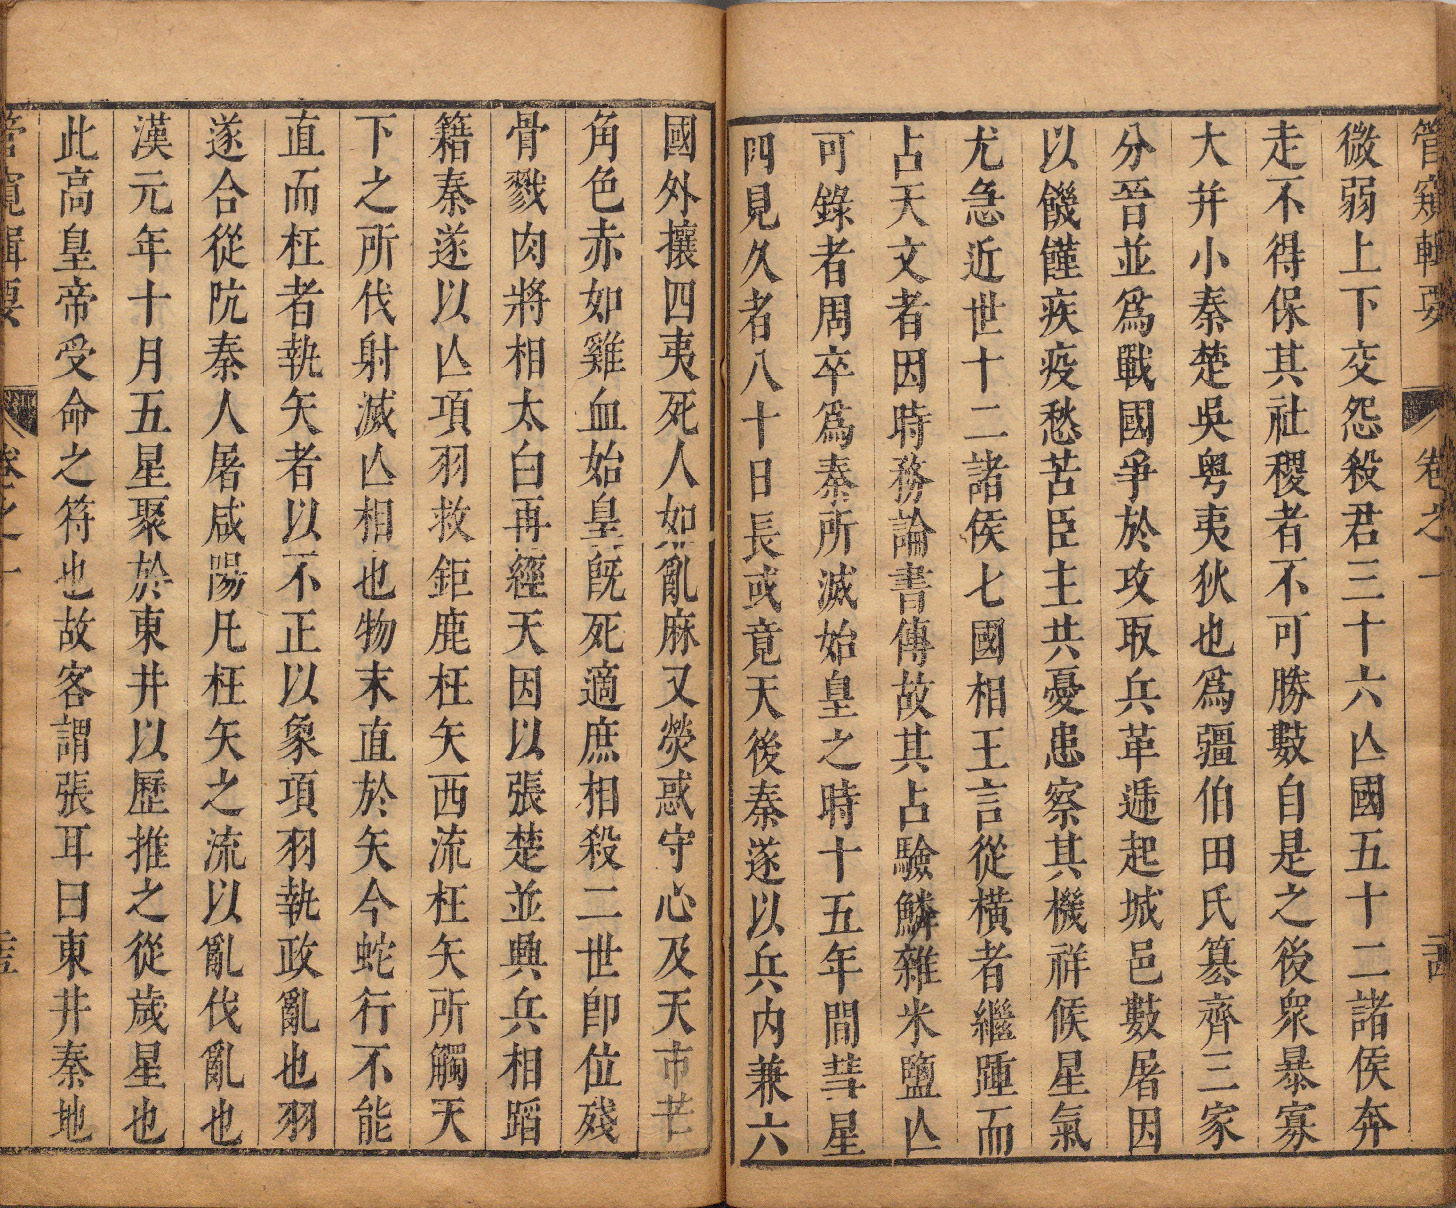 管窺輯要 卷之一
微弱上下交怨殺君三十六亾國五十二諸侯奔
走不得保其社稷者不可勝數自是之後衆暴寡
大并小秦楚吳粤夷狄也爲疆伯田氏簒齊三家
分晉並爲戰國爭於攻取兵革遞起城邑數屠因
以饑饉疾疫愁苦臣主共憂患察其機祥候星氣
尤急近世十二諸侯七國相王言從橫者繼踵而
占天文者因時務論書傳故其占驗鱗雜米鹽亾
可錄者周卒爲秦所滅始皇之時十五年間彗星
四見久者八十日長或竟天後秦遂以兵内兼六
國外攘四夷死人如亂麻又熒惑守心及天市芒
角色赤如雞血始皇既死適庶相殺二世卽位殘
骨戮肉將相太白再經天因以張楚並興兵相蹈
籍秦遂以亾項羽救鉅鹿枉矢西流枉矢所觸天
下之所伐射滅亾相也物末直於矢今蛇行不能
直而枉者執矢者以不正以象項羽執政亂也羽
遂合從阬秦人屠咸陽凡枉矢之流以亂伐亂也
漢元年十月五星聚於東井以歷推之從歲星也
此高皇帝受命之符也故客謂張耳曰東井秦地
管窺輯要 卷之一